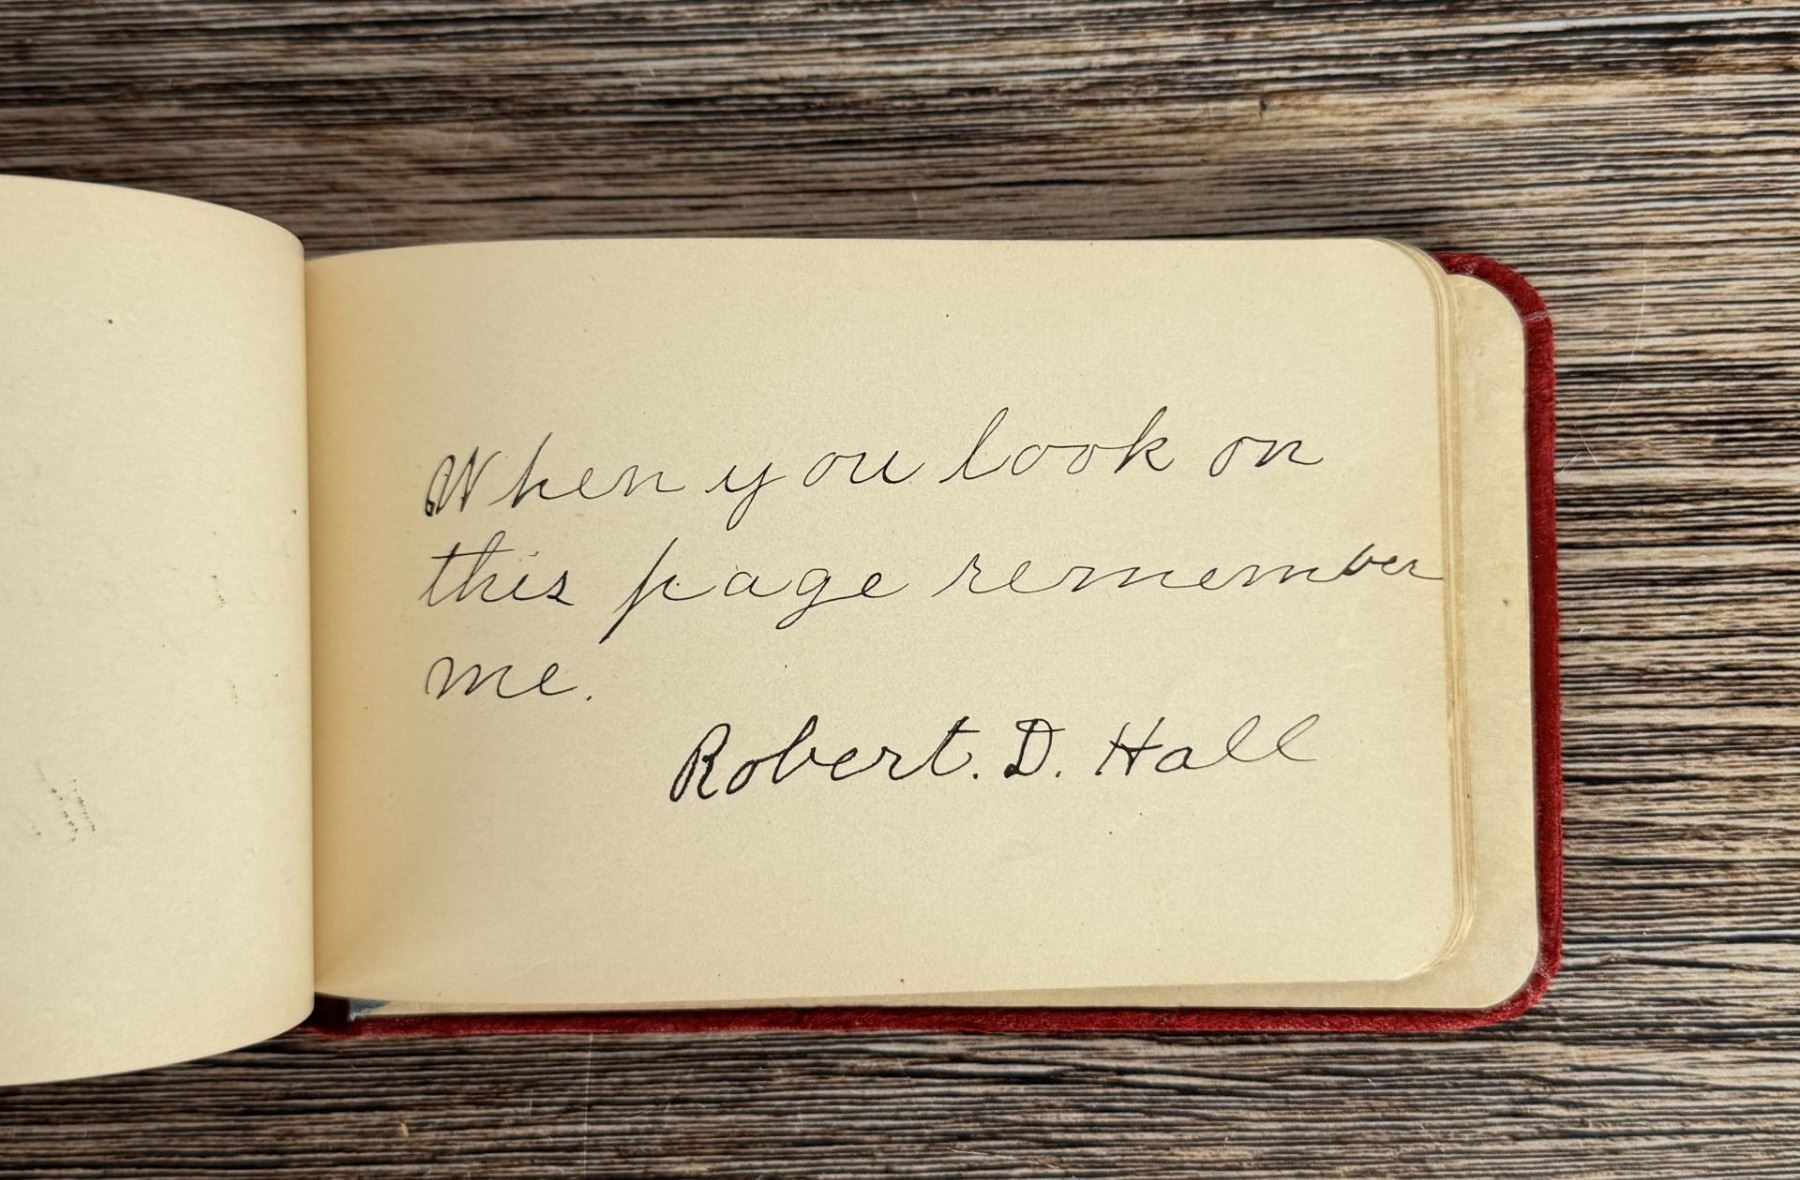 When you look on
this page remember
me.
Robert. D. Hall